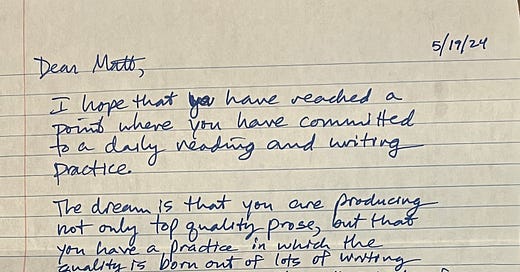 5/19/24
Dear Matt,
I hope that you have reached a
point where you have committed
to a daily reading and writing
practice.
The dream is that you are producing
not only top quality prose, but that
you have a practice in which the
quality is born out of lots of writing